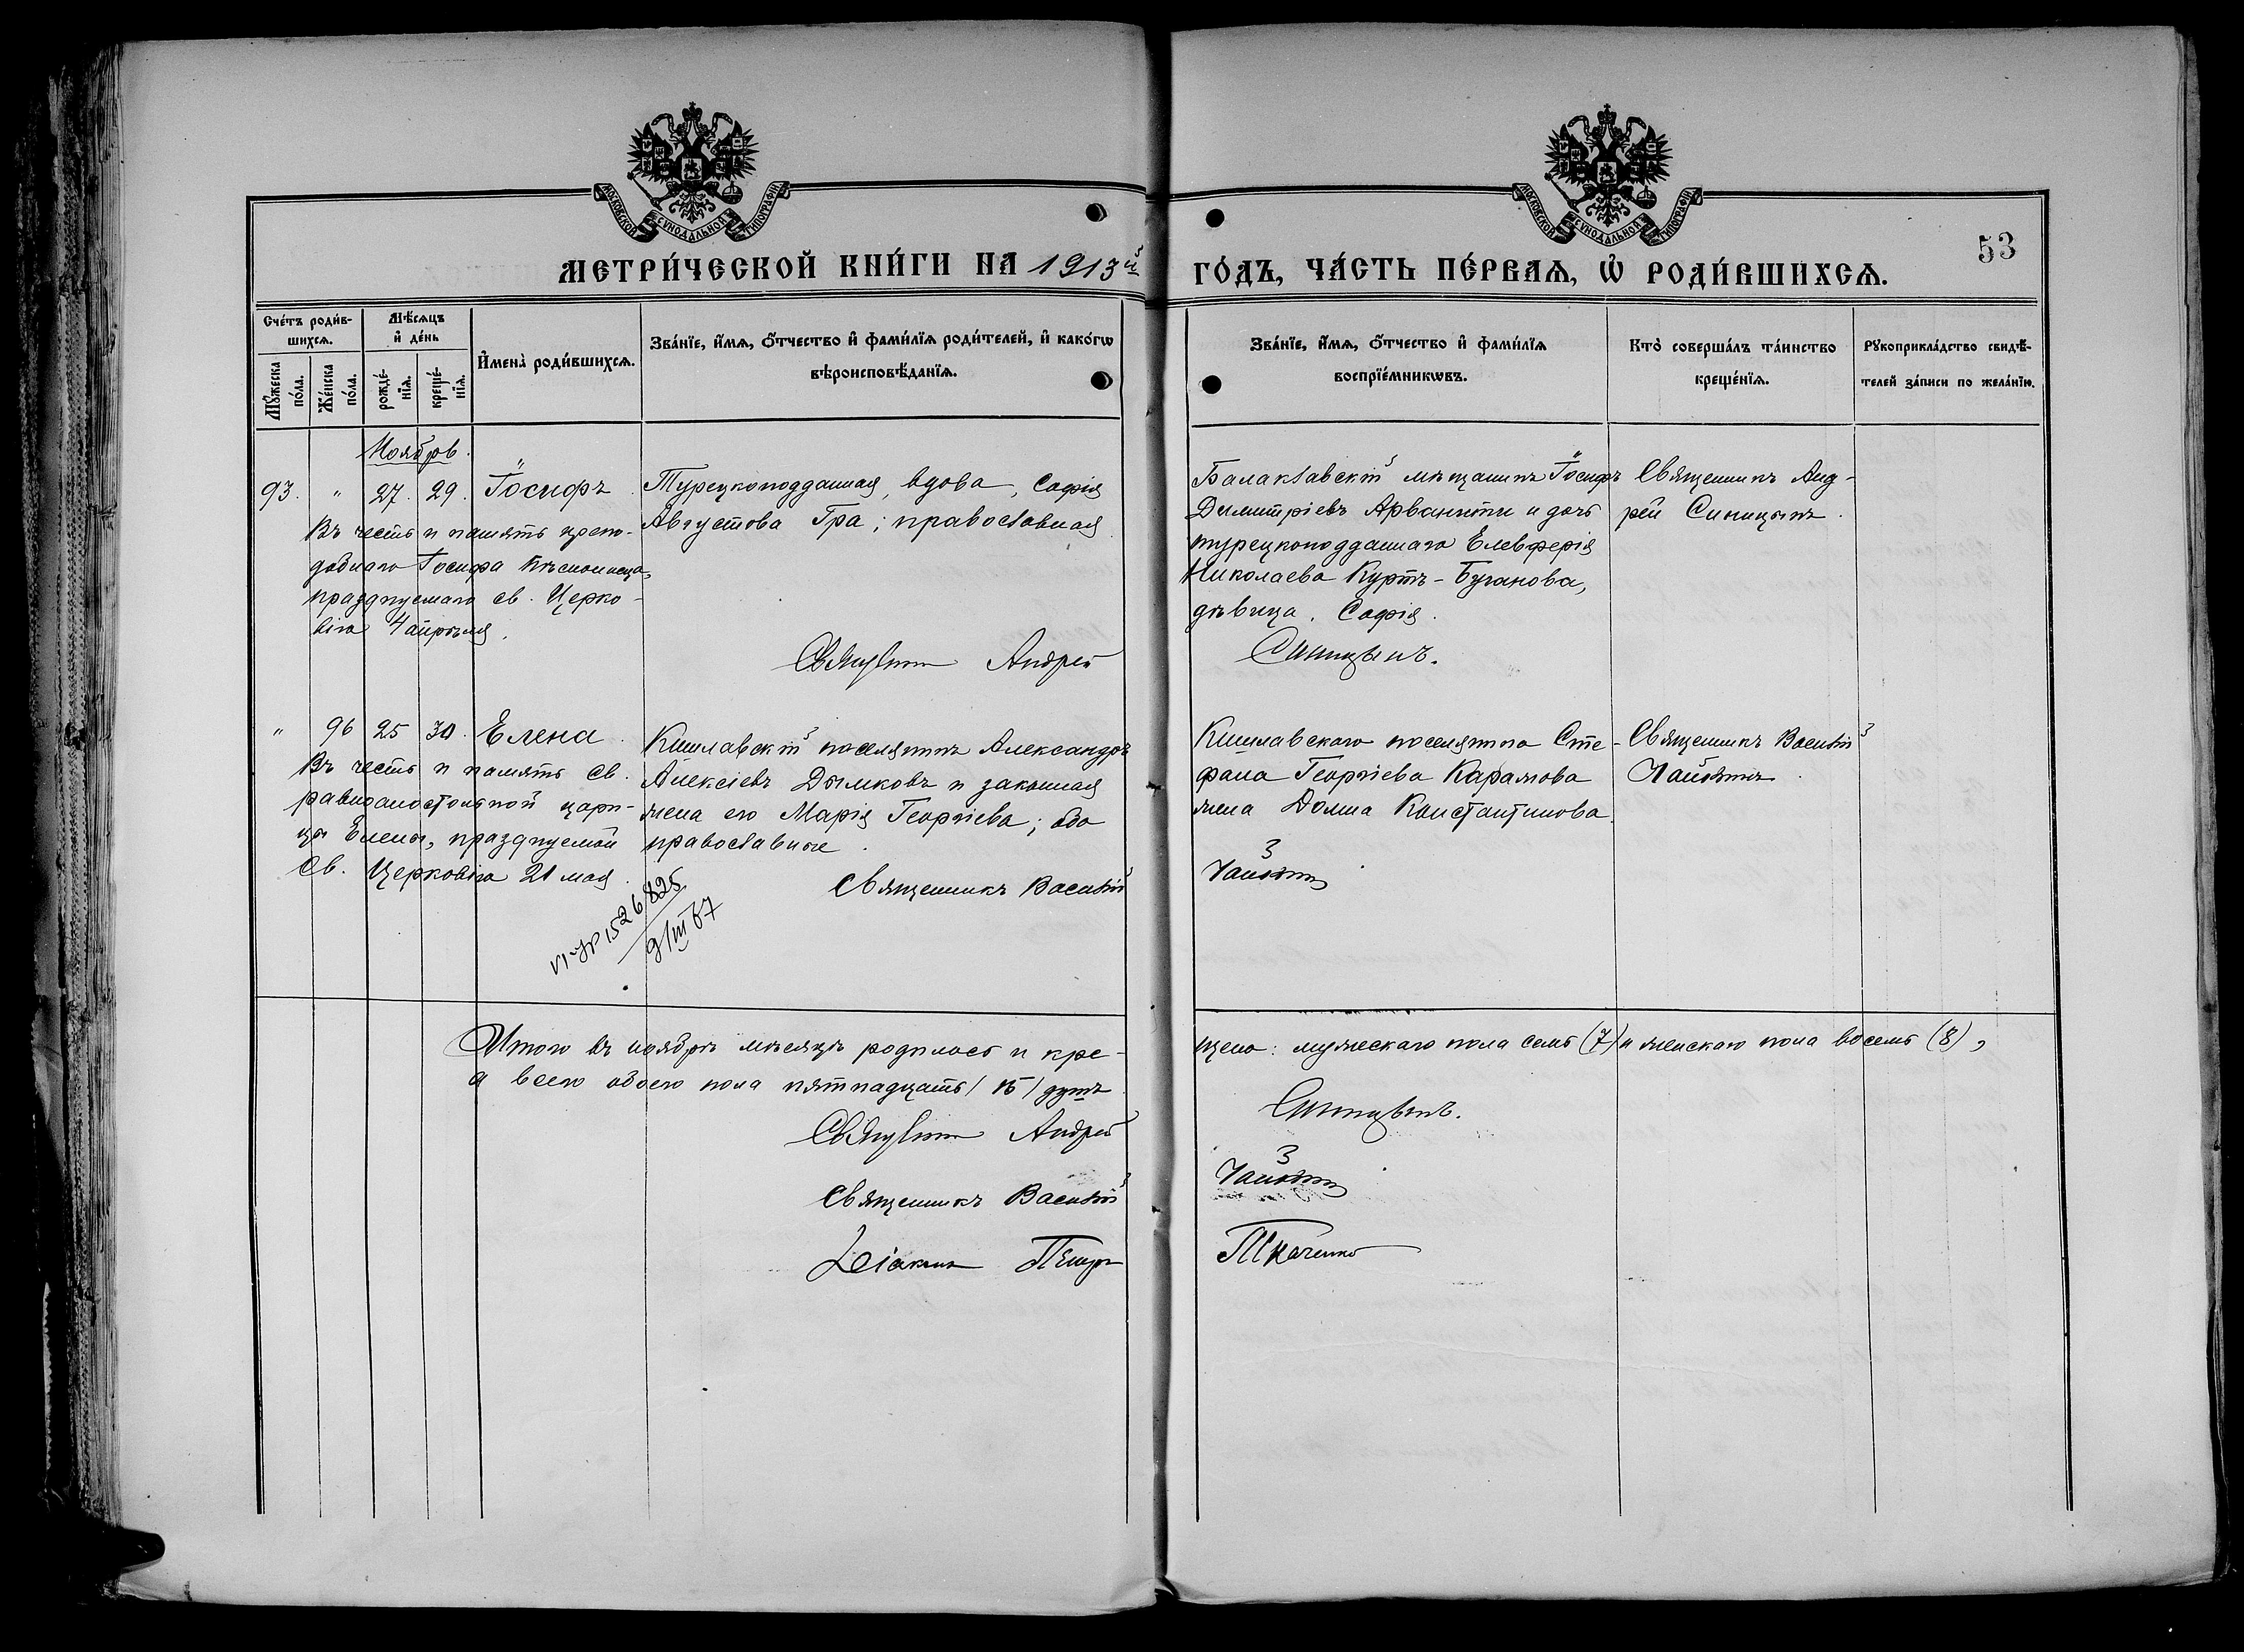 МОСКОВСКОЙ СѴНОДАЛЬНОЙ ТИПОГРАФІИ
МОСКОВСКОЙ СѴНОДАЛЬНОЙ ТИПОГРАФІИ
МЕТРИ́ЧЕСКОЙ КНИ́ГИ НА 1913й
ГО́ДЪ, ЧА́СТЬ ПЕ́РВАѦ, Ѡ҆ РОДИ́ВШИХСѦ.
53
Сче́тъ роди́в-
шихсѧ.
Мꙋ́жеска по́ла.
Же́нска по́ла.
Мѣ́сѧцъ
и҆ де́нь
рожде́-
нїѧ.
креще́-
нїѧ.
И҆мена̀ роди́вшихсѧ.
Зва́нїе, и҆́мѧ, ѻ҆́тчество и҆ фами́лїѧ роди́телей, и҆ како́гѡ
вѣроисповѣ́данїѧ.
Зва́нїе, и҆́мѧ, ѻ҆́тчество и҆ фами́лїѧ
воспрїе́мникѡвъ.
Кто̀ соверша́лъ та́инство
креще́нїѧ.
Рꙋкоприкла́дство свидѣ́-
телей за́писи по жела́нїю.
Ноябрь.
93. " 27. 29. Іосифъ.
Въ честь и память препо-
добнаго Іосифа Пѣснописца,
празднуемаго св. Церко-
вію 4 апрѣля.
Турецкоподданная, вдова, Софія
Августова Гра; православная
Андрей
Балаклавскій мѣщанинъ Іосифъ
Димитріевъ Арванити и дочь
турецкоподданнаго Елевферія
Николаева Куртъ-Буганова,
дѣвица, Софія.
Синицынъ.
Священникъ Анд-
рей Синицынъ.
" 96 25 30. Елена.
Въ честь и память св.
равноапостольной цари-
цы Елены, празднуемой
Св. Церковію 21 мая.
Кишлавскій поселянинъ Александръ
Алексіевъ Дымковъ и законная
жена его Марія Георгіева; оба
православные.
Священникъ Василій
1526825
9/III 67
Кишлавскаго поселянина Сте-
фана Георгіева Карамова
жена Домна Константинова.
Священникъ Василій
Итого въ ноябрѣ мѣсяцѣ родилось и кре-
щено: мужескаго пола семь (7) и женскаго пола восемь (8),
а всего обоего пола пятнадцать (15) душъ
Андрей
Синицынъ.
Священникъ Василій
Діаконъ Петръ
Ткаченко